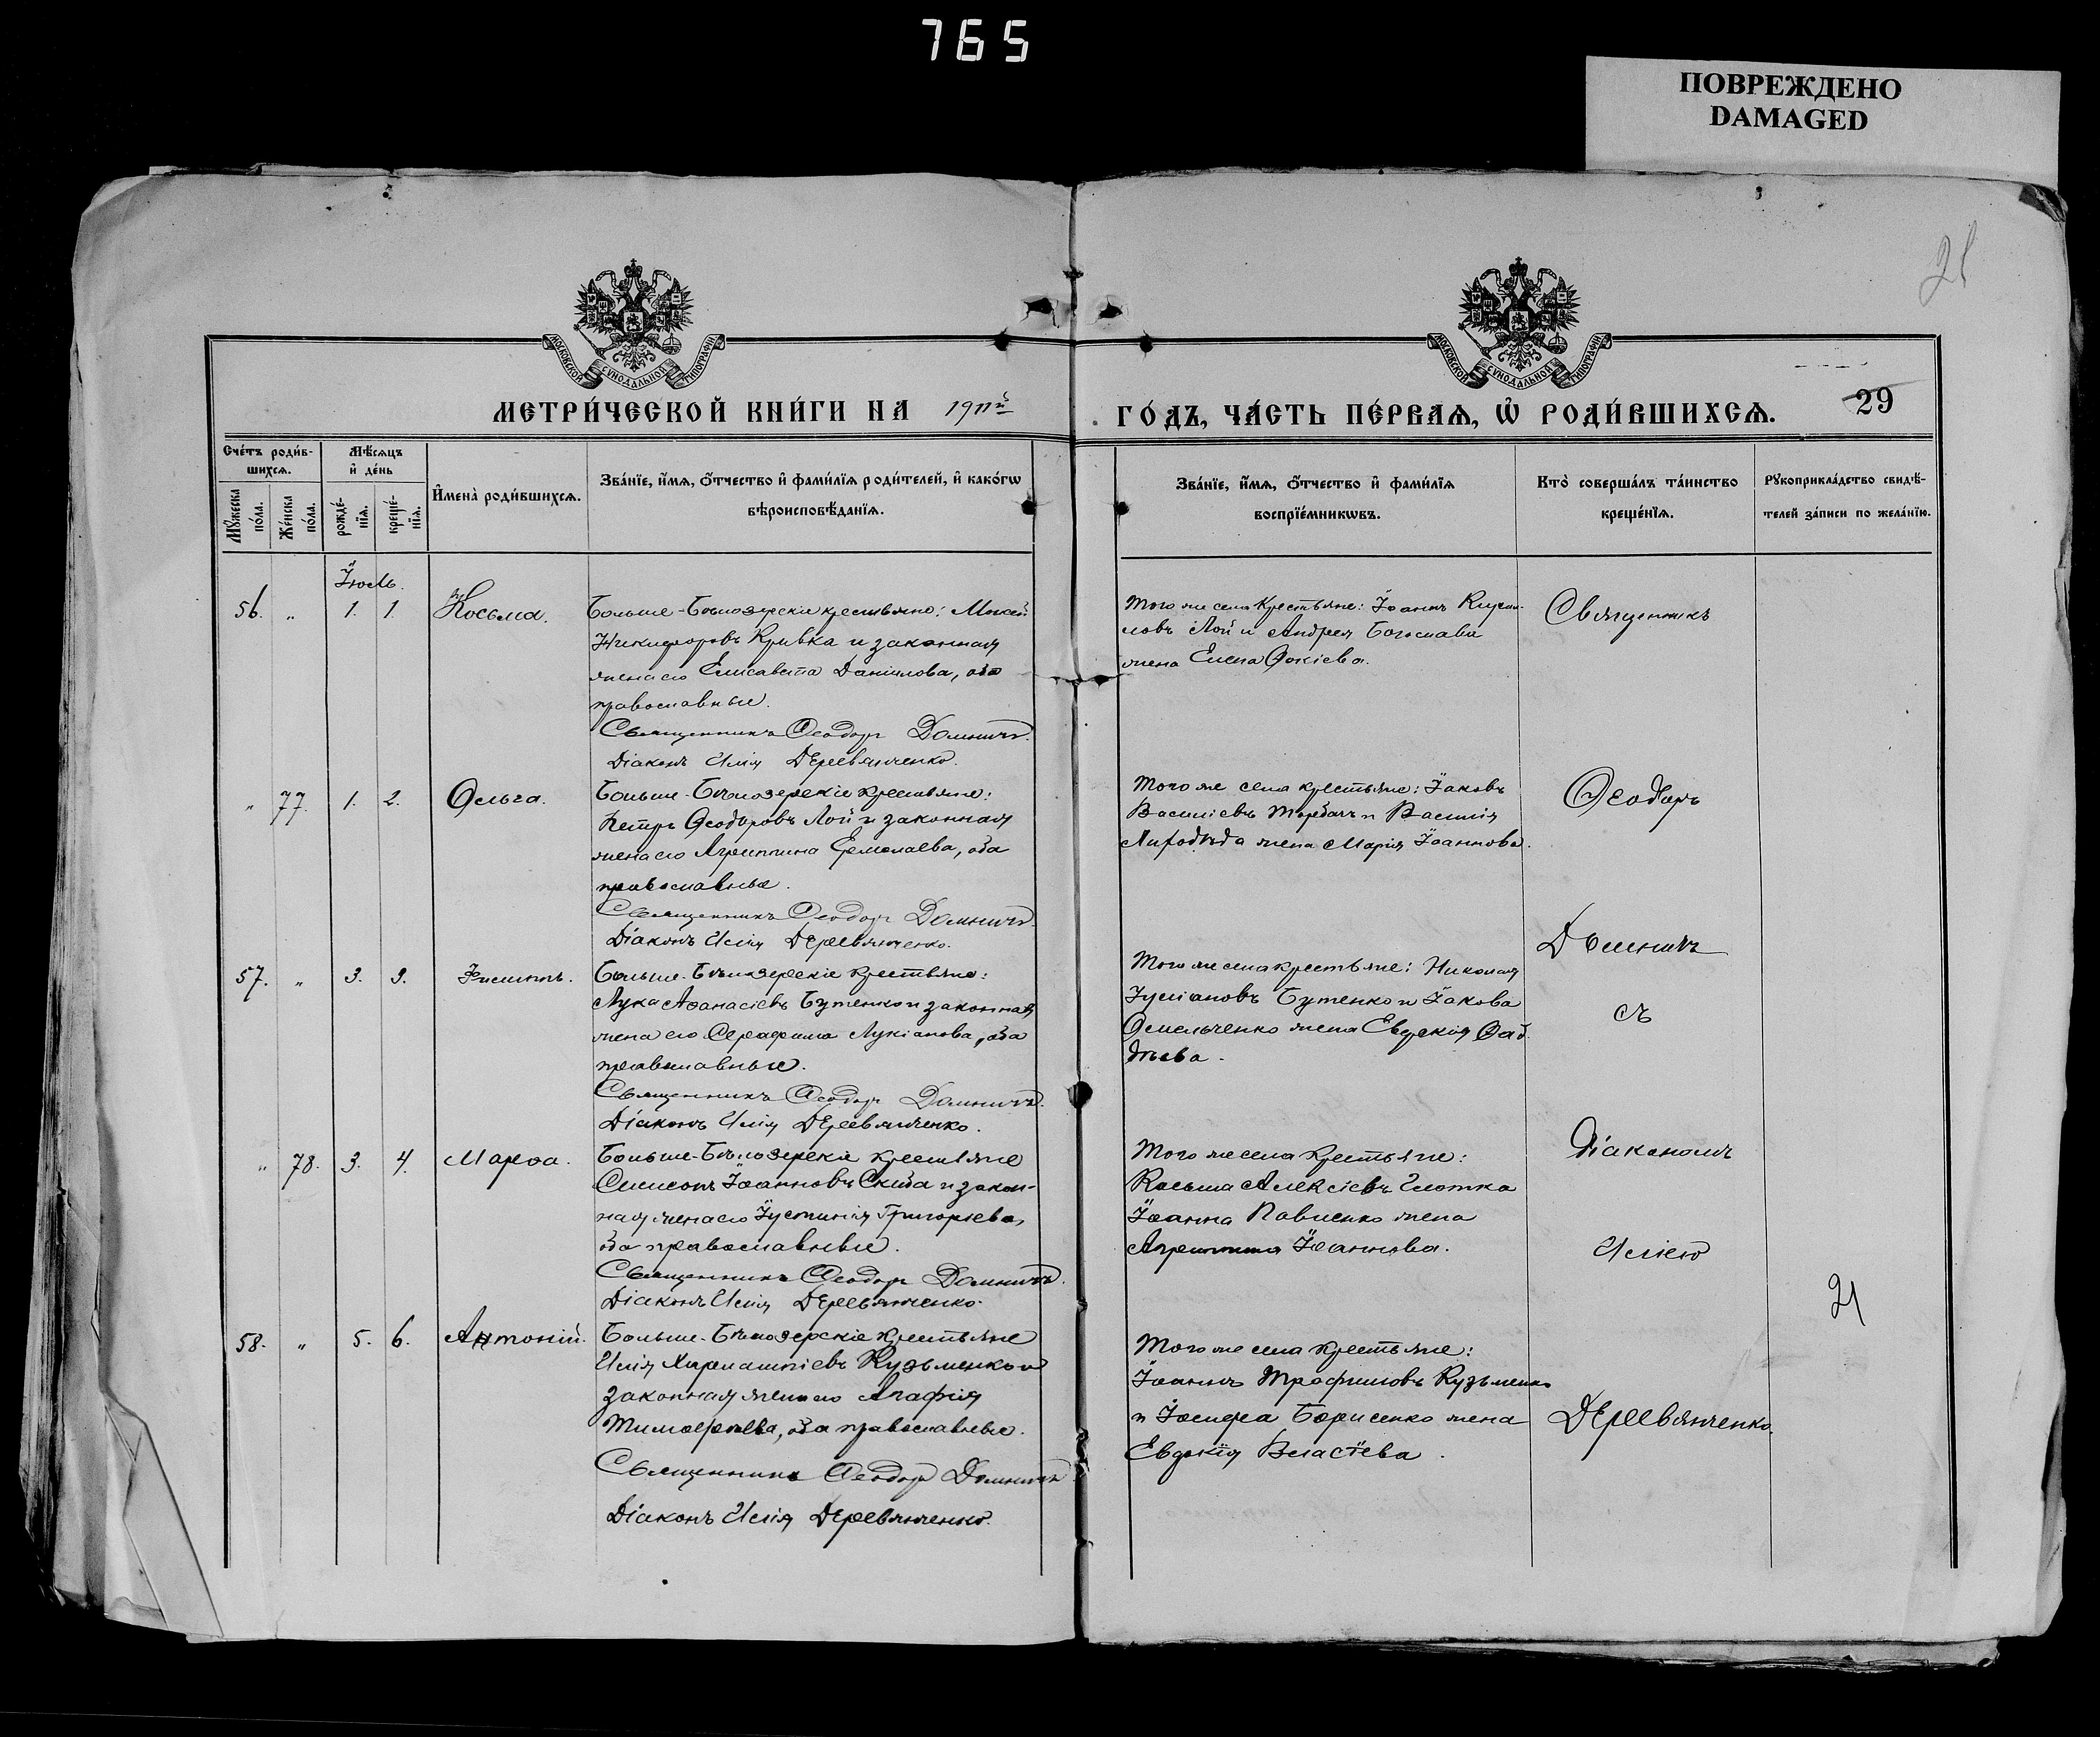 765
ПОВРЕЖДЕНО
DAMAGED
21
МОСКОВСКОЙ СѴНОДАЛЬНОЙ ТИПОГРАФІИ
МОСКОВСКОЙ СѴНОДАЛЬНОЙ ТИПОГРАФІИ
МЕТРИ́ЧЕСКОЙ КНИ́ГИ НА 1911й
ГО́ДЪ, ЧА́СТЬ ПЕ́РВАѦ, Ѡ҆ РОДИ́ВШИХСѦ. 29
Сче́тъ роди́в-
шихсѧ.
Мꙋ́жеска по́ла.
Же́нска по́ла.
Мѣ́сѧцъ
и҆ де́нь
рожде́-
нїѧ.
креще́-
нїѧ.
И҆мена̀ роди́вшихсѧ.
Зва́нїе, и҆́мѧ, ѻ҆́тчество и҆ фами́лїѧ роди́телей, и҆ како́гѡ
вѣроисповѣ́данїѧ.
Зва́нїе, и҆́мѧ, ѻ҆́тчество и҆ фами́лїѧ
воспрїе́мникѡвъ.
Кто̀ соверша́лъ та́инство
креще́нїѧ.
Рꙋкоприкла́дство свидѣ́-
телей за́писи по жела́нїю.
Іюль.
56. „ 1. 1. Косьма.
Больше-Бѣлозерскіе крестьяне:
Никифоровъ Кривка и законная
жена его Елисавета Даніилова, оба
православные.
Священникъ Ѳеодоръ Домничъ.
Діаконъ Илія Деревянченко.
Того же села крестьяне: Іоаннъ
ловъ Лой и Андрея Богослава
жена Елена Фокіева.
Священникъ
„ 77. 1. 2. Ольга.
Больше-Бѣлозерскіе крестьяне:
Петръ Ѳеодоровъ Лой и законная
жена его Агриппина Ермолаева, оба
православные.
Священникъ Ѳеодоръ Домничъ.
Діаконъ Илія Деревянченко.
Того же села крестьяне: Іаковъ
Василіевъ и Василія
Лиходѣда жена Марія Іоаннова.
Ѳеодоръ
57. „ 3. 3. Филиппъ.
Больше-Бѣлозерскіе крестьяне:
Лука Аѳанасіевъ Бутенко и законная
жена его Серафима Лукіанова, оба
православные.
Священникъ Ѳеодоръ Домничъ.
Діаконъ Илія Деревянченко.
Того же села крестьяне: Николай
Іуліановъ Бутенко и Іакова
Омельченко жена Евдокія Ѳад
дѣева.
Домничъ
съ
„ 78. 3. 4. Марѳа.
Больше-Бѣлозерскіе крестьяне
Симеонъ Іоанновъ Скиба и закон-
ная жена его Іустинія Григоріева,
оба православные.
Священникъ Ѳеодоръ Домничъ.
Діаконъ Илія Деревянченко.
Того же села крестьяне:
Косьма Алексіевъ Глотка
Іоанна Павленко жена
Агриппина Іоаннова.
Діакономъ
Иліею
21
58. „ 5. 6. Антоній.
Больше-Бѣлозерскіе крестьяне
Илія Харлампіевъ Кузьменко и
законная жена его Агафія
Тимоѳеева, оба православные.
Священникъ Ѳеодоръ Домничъ
Діаконъ Илія Деревянченко.
Того же села крестьяне:
Іоаннъ Трофимовъ Кузьменко
и Іосифа Борисенко жена
Евдокія Власіева.
Деревянченко.